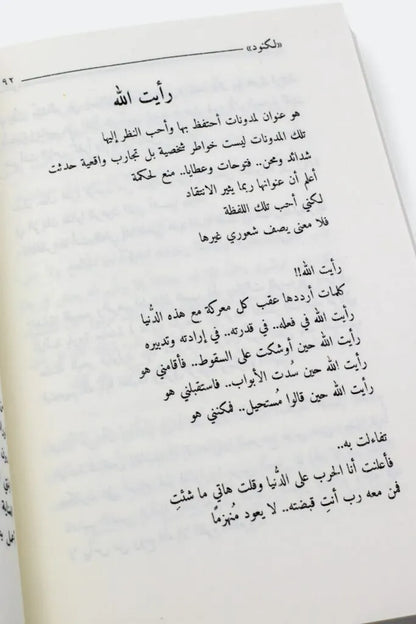 «لكنود» ٩٢
رأيت الله
هو عنوان لمدونات أحتفظ بها وأحب النظر إليها
تلك المدونات ليست خواطر شخصية بل تجارب واقعية حدثت
شدائد ومحن.. فتوحات وعطايا.. منع لحكمة
أعلم أن عنوانها ربما يثير الانتقاد
لكني أحب تلك اللفظة
فلا معنى يصف شعوري غيرها
رأيت الله!!
كلمات أرددها عقب كل معركة مع هذه الدُّنيا
رأيت الله في فعله.. في قدرته.. في إرادته وتدبيره
رأيت الله حين أوشكت على السقوط.. فأقامني هو
رأيت الله حين سُدت الأبواب.. فاستقبلني هو
رأيت الله حين قالوا مُستحيل.. فمكنني هو
تفاءلت به..
فأعلنت أنا الحرب على الدُّنيا وقلت هاتي ما شئتِ
فمن معه رب أنتِ قبضته.. لا يعود مُنهزمًا